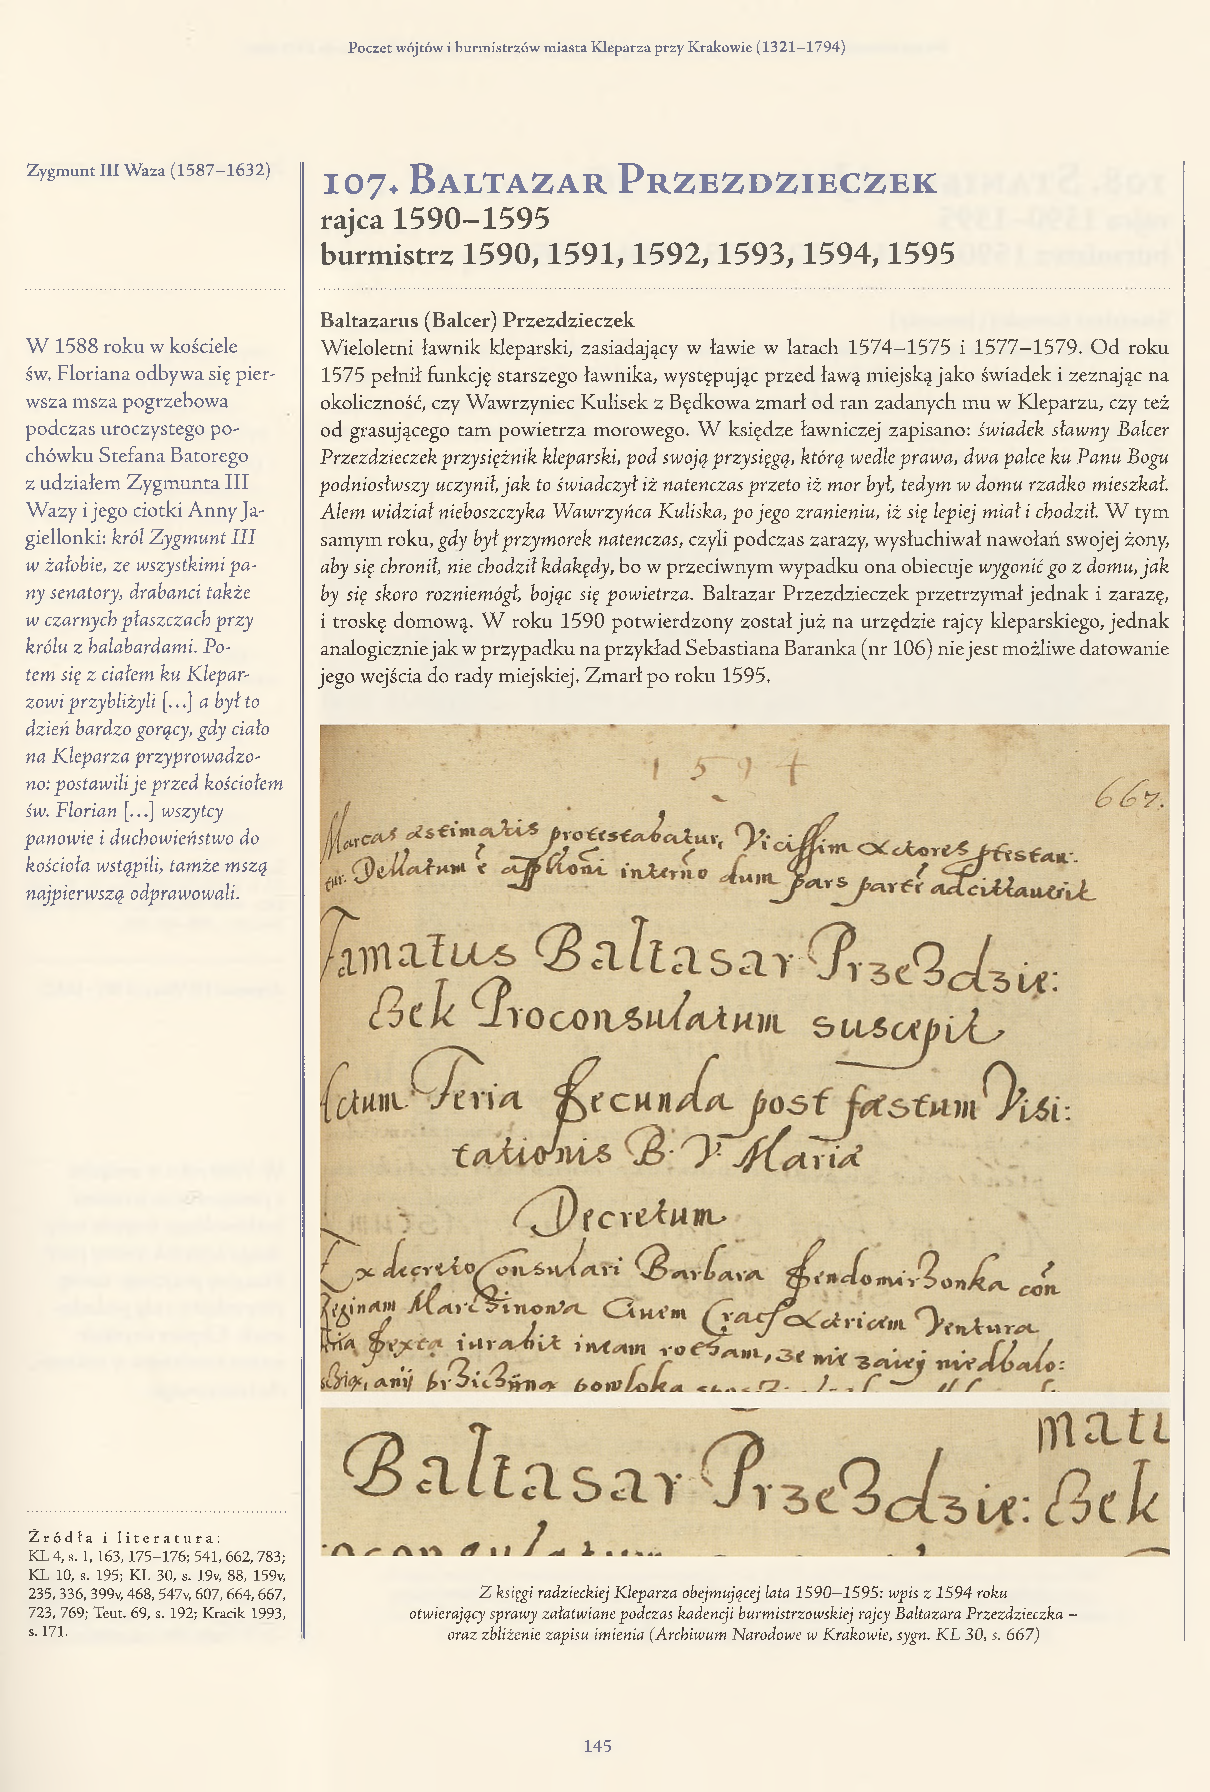 Poczet wójtów i burmistrzów miasta Kleparza przy Krakowie (1321–1794)
Zygmunt III Waza (1587–1632)
W 1588 roku w kościele
św. Floriana odbywa się pier-
wsza msza pogrzebowa
podczas uroczystego po-
chówku Stefana Batorego
z udziałem Zygmunta III
Wazy i jego ciotki Anny Ja-
giellonki: król Zygmunt III
w żałobie, ze wszystkimi pa-
ny senatory, drabanci także
w czarnych płaszczach przy
królu z halabardami. Po-
tem się z ciałem ku Klepar-
zowi przybliżyli [...] a był to
dzień bardzo gorący, gdy ciało
na Kleparza przyprowadzo-
no: postawili je przed kościołem
św. Florian [...] wszytcy
panowie i duchowieństwo do
kościoła wstąpili, tamże mszą
najpierwszą odprawowali.
Źródła i literatura:
KL 4, s. 1, 163, 175–176; 541, 662, 783;
KL 10, s. 195; KL 30, s. 19v, 88, 159v,
235, 336, 399v, 468, 547v, 607, 664, 667,
723, 769; Teut. 69, s. 192; Kracik 1993,
s. 171.
107. Baltazar Przezdzieczek
rajca 1590–1595
burmistrz 1590, 1591, 1592, 1593, 1594, 1595
Baltazarus (Balcer) Przezdzieczek
Wieloletni ławnik kleparski, zasiadający w ławie w latach 1574–1575 i 1577–1579. Od roku
1575 pełnił funkcję starszego ławnika, występując przed ławą miejską jako świadek i zeznając na
okoliczność, czy Wawrzyniec Kulisek z Będkowa zmarł od ran zadanych mu w Kleparzu, czy też
od grasującego tam powietrza morowego. W księdze ławniczej zapisano: świadek sławny Balcer
Przezdzieczek przysiężnik kleparski, pod swoją przysięgą, którą wedle prawa, dwa palce ku Panu Bogu
podniosłwszy uczynił, jak to świadczył iż natenczas przeto iż mor był, tedym w domu rzadko mieszkał.
Alem widział nieboszczyka Wawrzyńca Kuliska, po jego zranieniu, iż się lepiej miał i chodził. W tym
samym roku, gdy był przymorek natenczas, czyli podczas zarazy, wysłuchiwał nawołań swojej żony,
aby się chronił, nie chodził kdakędy, bo w przeciwnym wypadku ona obiecuje wygonić go z domu, jak
by się skoro rozniemógł, bojąc się powietrza. Baltazar Przezdzieczek przetrzymał jednak i zarazę,
i troskę domową. W roku 1590 potwierdzony został już na urzędzie rajcy kleparskiego, jednak
analogicznie jak w przypadku na przykład Sebastiana Baranka (nr 106) nie jest możliwe datowanie
jego wejścia do rady miejskiej. Zmarł po roku 1595.
1594
667.
Marcas æstimatis protestabatur, Vicissim Actores
dum pars parte adcittauerit
Famatus Baltasar Przezdzie:
czek Proconsulatum suscepit
Actum Feria Secunda post fæstum Visi:
tationis B. V. Mariæ
Decretum
Ex decreto Consulari Barbara Sendomirzonka con
Reginam Marczinowa Ciuem Crac Actricem Ventura
feria sexta iurabit rotham, ze nie zaiej niedbalo:
Baltasar Przezdzie: czek
matu
Z księgi radzieckiej Kleparza obejmującej lata 1590–1595: wpis z 1594 roku
otwierający sprawy załatwiane podczas kadencji burmistrzowskiej rajcy Baltazara Przezdzieczka –
oraz zbliżenie zapisu imienia (Archiwum Narodowe w Krakowie, sygn. KL 30, s. 667)
145